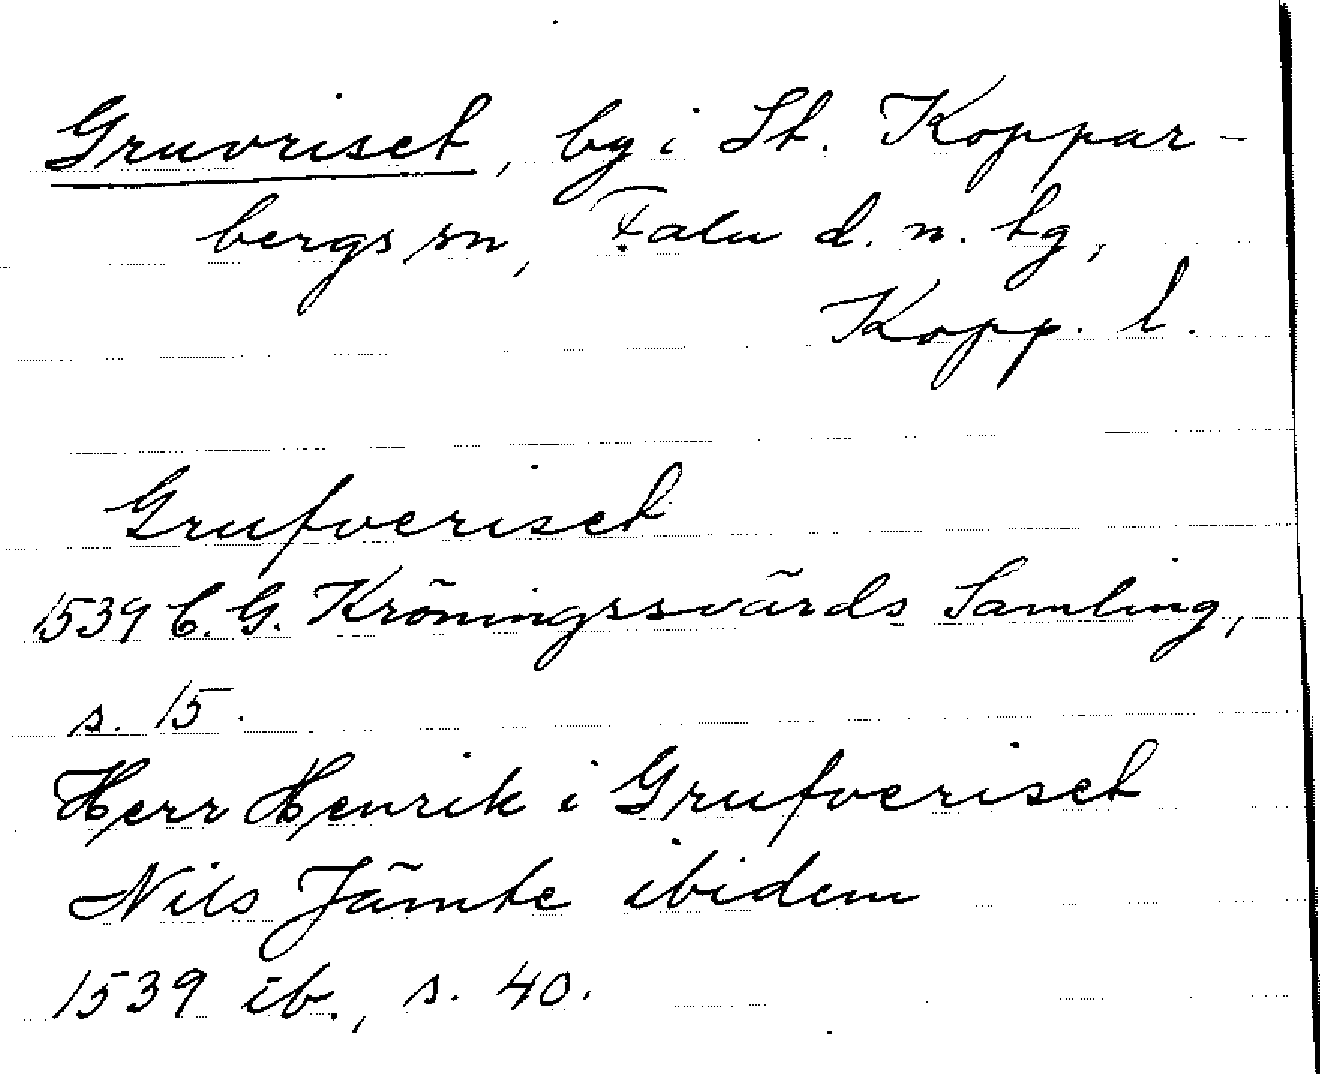 Gruvriset, by i St. Koppar-
bergs sn, Falu d. n. tg,
Kopp. l.
Grufveriset
1539 C. G. Kröningssvärds Samling,
s. 15.
Herr Henrik i Grufveriset
Nils Jämte ibidem
1539 ib., s. 40.